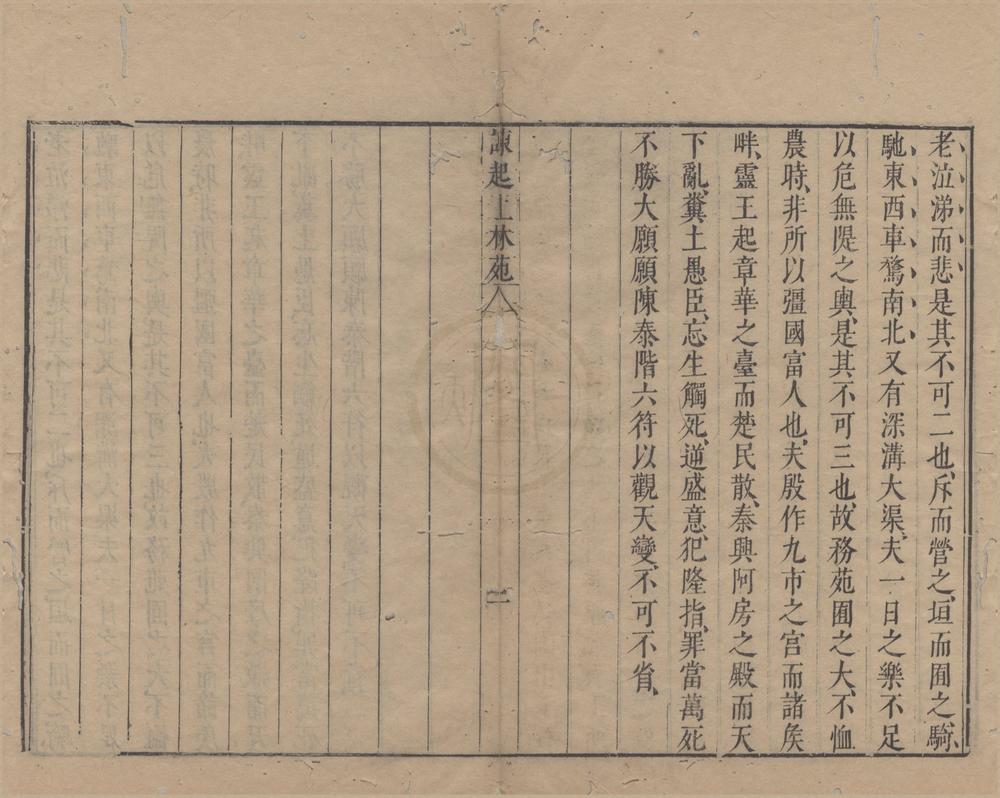 老泣涕而悲是其不可二也、斥而營之、垣而囿之、騎
馳東西車騖南北又有深溝大渠、夫一日之樂不足
以危無隄之輿、是其不可三也、故務苑囿之大、不恤
農時、非所以彊國富人也、夫殷作九市之宮而諸矦
畔、靈王起章華之臺而楚民散、秦興阿房之殿而天
下亂、糞土愚臣、忘生觸死、逆盛意、犯隆指、罪當萬死
不勝大願願陳泰階六符以觀天變、不可不省、
諫起上林苑 二